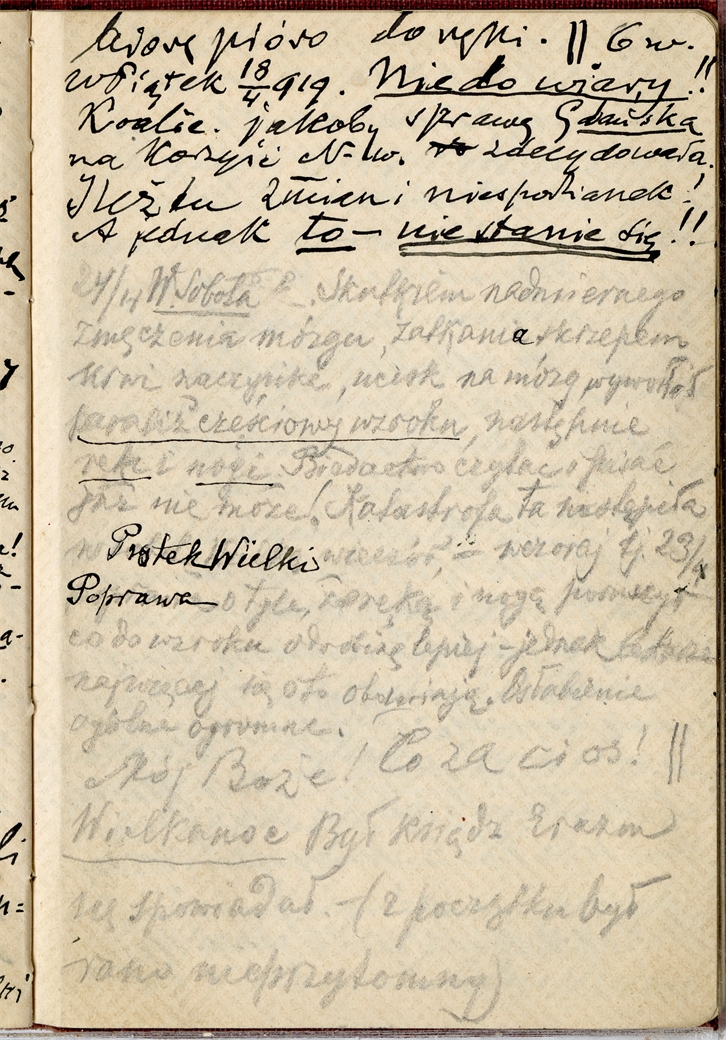 biorę pióro do ręki. || 6 w.
w Piątek 18/4 919. Nie do wiary!!
Koalic. jakoby sprawę Gdańska
na korzyść N-w. zdecydowała.
Ileż tu zmian i niespodzianek!
A jednak to – nie stanie się!!
24/IV W. Sobota Skutkiem nadmiernego
zmęczenia mózgu, zatkania skrzepem
krwi naczynka, ucisk na mózg, wywołał
paraliż częściowy wzroku, następnie
ręki i nogi Biedactwo czytać i pisać
już nie może! Katastrofa ta nastąpiła
Piątek Wielki wieczór, – wczoraj tj 23/
Poprawa o tyle, że ręką i nogą poruszył
co do wzroku odrobinę lepiej – jednak lekarze
najwięcej się o to obawiają. Osłabienie
ogólne ogromne.
Mój Boże! Co za cios! ||
Wielkanoc Był ksiądz Erazm
się spowiadał. – (z początku był
rano nieprzytomny)